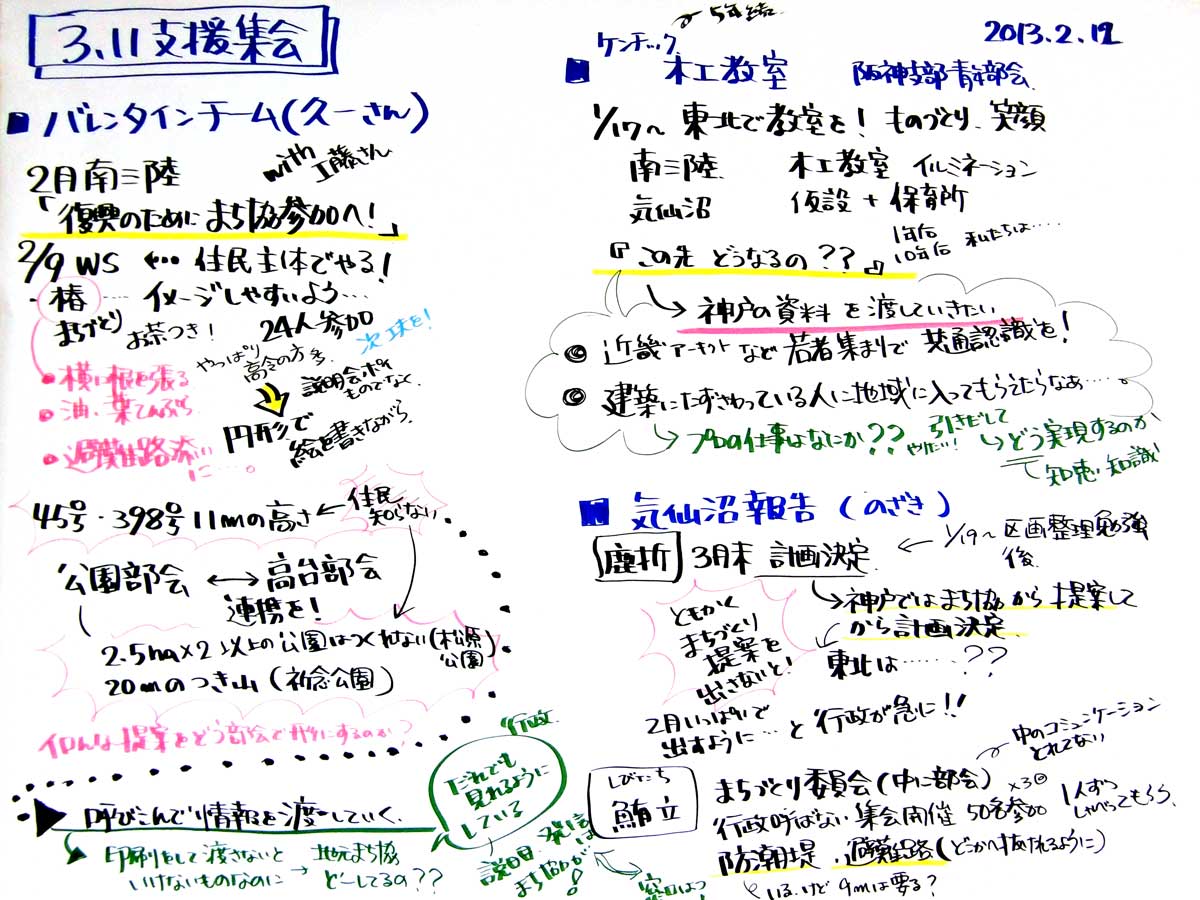 3.11支援集会
■ バレンタインチーム(久一さん)
2月南三陸
with 工藤さん
「復興のためにまち協参加へ!」
2/9 WS ←… 住民主体でやる!
・椿 …… イメージしやすいよう…
まちづくり
お茶つき!
24人参加
次球を!
やっぱり
高令の方多
・横に根を張る
・油・葉てんぷら
・避難路添い
に…。
説明会ポイ
ものでなく
円形で
絵を書きながら
45号・398号 11mの高さ ← 住民
知らない
公園部会 ←→ 高台部会
連携を!
2.5ha×2 以上の公園はつくれない(松原
公園)
20mのつき山(祈念公園)
イロんな提案をどう部会で形にするのか?
▶ 呼びこんで情報を渡していく
印刷をして渡さないと
いけないものなのに
→ 地元まち協
どーしてるの??
行政
だれでも
見れるように
している
説明、発信
まち協が!
2013.2.12
5年続
ケンチック
■ 木工教室 阪神支部青年部会
1/17～ 東北で教室を! ものづくり、笑顔
南三陸 木工教室 イルミネーション
気仙沼 仮設+保育所
『この先 どうなるの??』
1年后
10年后 私たちは……
神戸の資料を渡していきたい
◎ 近畿アーキテクトなど若者集まりで 共通認識を!
◎ 建築にたずさわっている人に地域に入ってもらえたらなぁ……。
→ プロの仕事はなにか??
引きだして
やだ…!
どう実現するのか
知恵・知識
■ 気仙沼報告(のざき)
鹿折 3月末 計画決定
← 1/19～区画整理勉強
後
神戸ではまち協から提案して
から計画決定
東北は……??
ともかく
まちづくり
提案を
出さないと!
2月いっぱいで
出すように… と行政が急に!!
中のコミュニケーション
とれてない
しびたち
鮪立
まちづくり委員会(中に部会) ×3
行政呼ばない 集会開催 50名参加
1人ずつ
しゃべってもらう
防潮堤・避難路(どこかへ抜かれるように)
いるけど9mは要る?